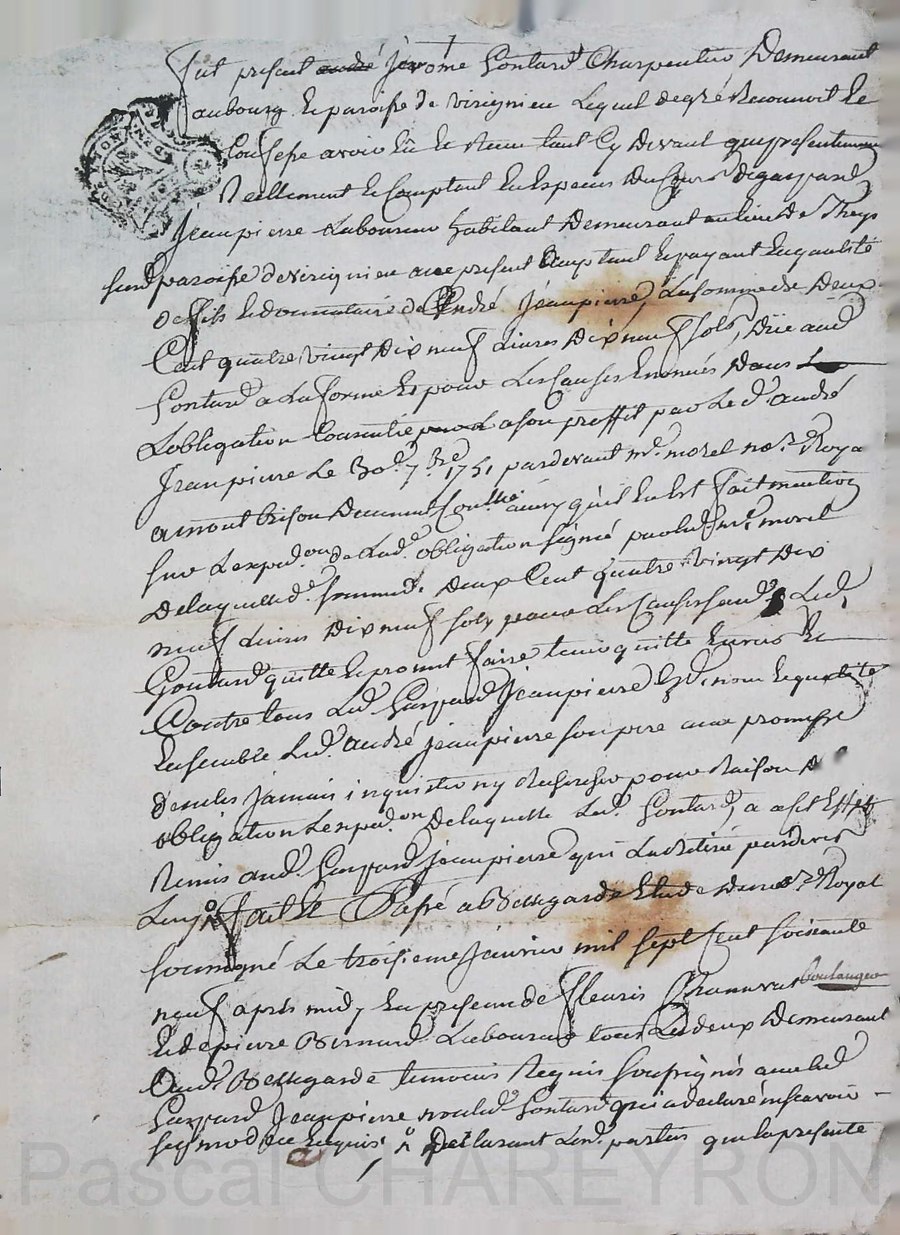 fut présent andré jérome Gontard Charpentier Demeurant
faubourg & paroisse de virignieu Lequel de gré Reconnoit Et
Confesse avoir Eü Et Receu tant Cy devant que présentement
Réellement Et Comptant En Especes Du Cours De gaspard
Jeanpierre Laboureur habitant Demeurant au lieu De Theys
susd paroisse de virignieu Compt ant Et payant En qualité
de fils Et donnataire de André Jeanpierre, La somme de Deux
Cent quatre vingt Dix neuf Livres Dix neuf sols, Düe aud
Gontard a La forme Et pour Les Causes Enoncées Dans
L'obligation Consentie a son proffit par Le d. andré
Jeanpierre Le 30e. 7bre 1751 pardevant me. morel nore. Roya
a montbrison Deument Conllée ainsy qu'il En Est fait mention
sur L'expedon. de Lad. obligation signé par led. me. morel
De laquelle de. somme de Deux Cent quatre vingt Dix
neuf Livres Dix neuf sols pour Les Causes susd. Led.
Gontard quitte Et promet faire tenir quitte Envers Et
Contre tous Led. Gaspard Jeanpierre Esd. nom Et qualité
Ensemble Led. andré jeanpierre son pere avec promesse
de ne les jamais inquietter ny Rechercher pour Raison De
obligation L'expedon. De laquelle Led. Gontard, a a cet Effet
Remis aud. Gaspard jeanpierre qui La Retiré pardevers
Luy, fait Et Passé a Bellegarde Etude Du nore. Royal
soussigné Le troisieme Janvier mil sept Cent soixante
neuf après midy En présence de fleuris Boulanger
Et de pierre Bernard Laboureur tous Les deux Demeurant
Aud. Bellegarde temoins Requis soussignés avec led
Gaspard Jeanpierre non led. Gontard qui a declaré ne scavoir
signer de ce Enquis Declarant Lesd. parties que la présente
Pascal CHAREYRON